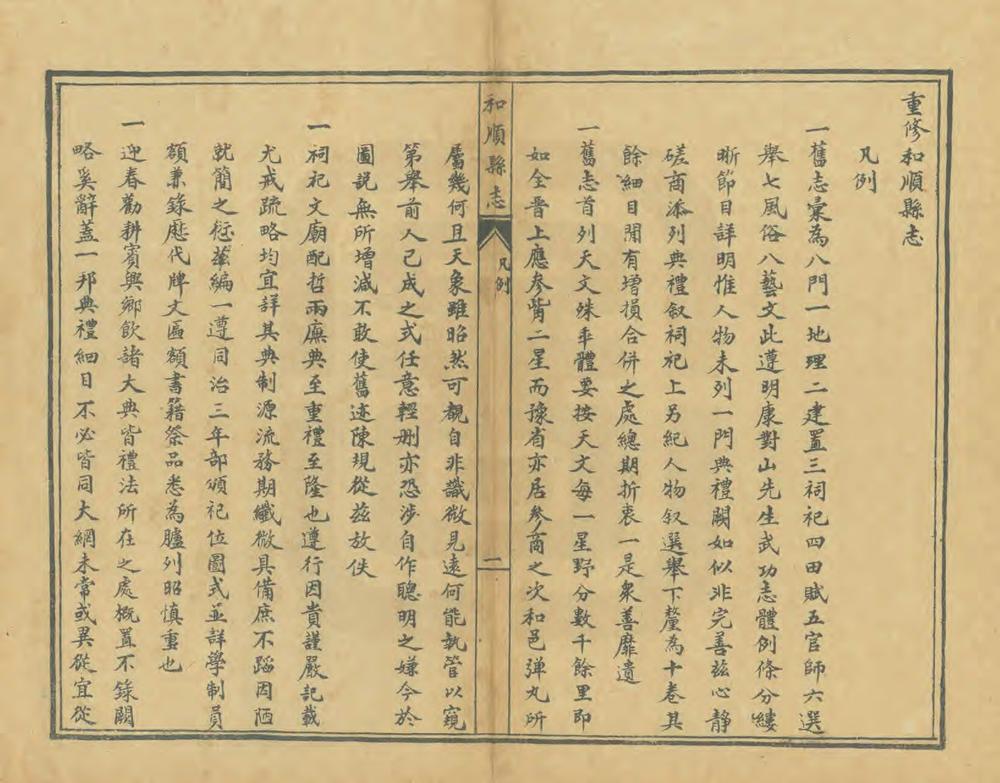 重修和順縣志
凡例
一舊志彙為八門一地理二建置三祠祀四田賦五官師六選
舉七風俗八藝文此遵明康對山先生武功志體例條分縷
晰節目詳明惟人物未列一門典禮闕如似非完善茲心靜
磋商添列典禮敘祠祀上另紀人物敘選舉下釐為十卷其
餘細目間有增損合併之處總期折衷一是衆善靡遺
一舊志首列天文殊乖體要按天文每一星野分數千餘里即
如全晋上應參觜二星而豫省亦居參商之次和邑弹丸所
和順縣志
凡例
一
屬幾何且天象雖昭然可觀自非識微見遠何能執管以窺
第舉前人已成之式任意輕刪亦恐涉自作聰明之嫌今於
圖説無所增減不敢使舊迹陳規從茲放佚
一祠祀文廟配哲兩廡典至重禮至隆也遵行因貴謹嚴記載
尤戒疏略均宜詳其典制源流務期纖微具備庶不蹈因陋
就簡之愆茲編一遵同治三年部頒祀位圖式並詳學制員
額兼錄歷代牌文匾額書籍祭品悉為臚列昭慎重也
一迎春勸耕賓興鄉飲諸大典皆禮法所在之處概置不錄闕
略奚辭蓋一邦典禮細目不必皆同大綱未常或異從宜從